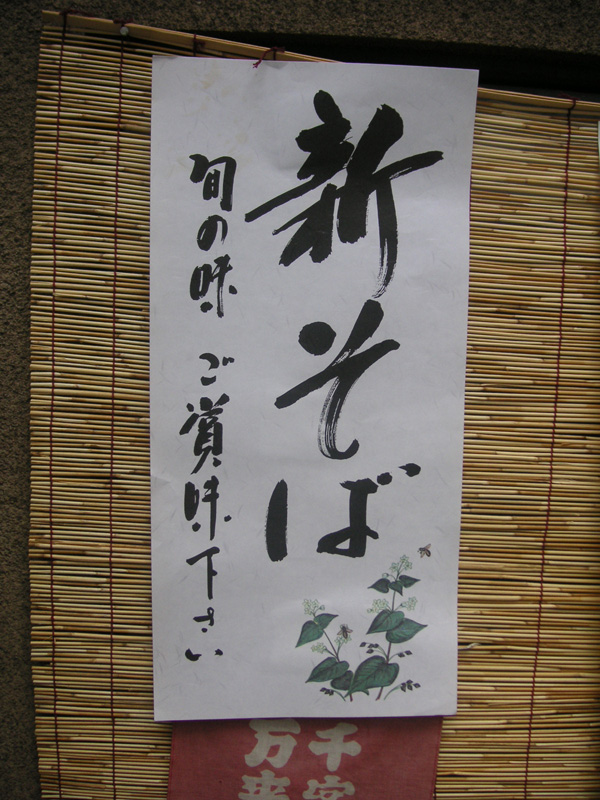 新そば
旬の味 ご賞味下さい
千客
万来